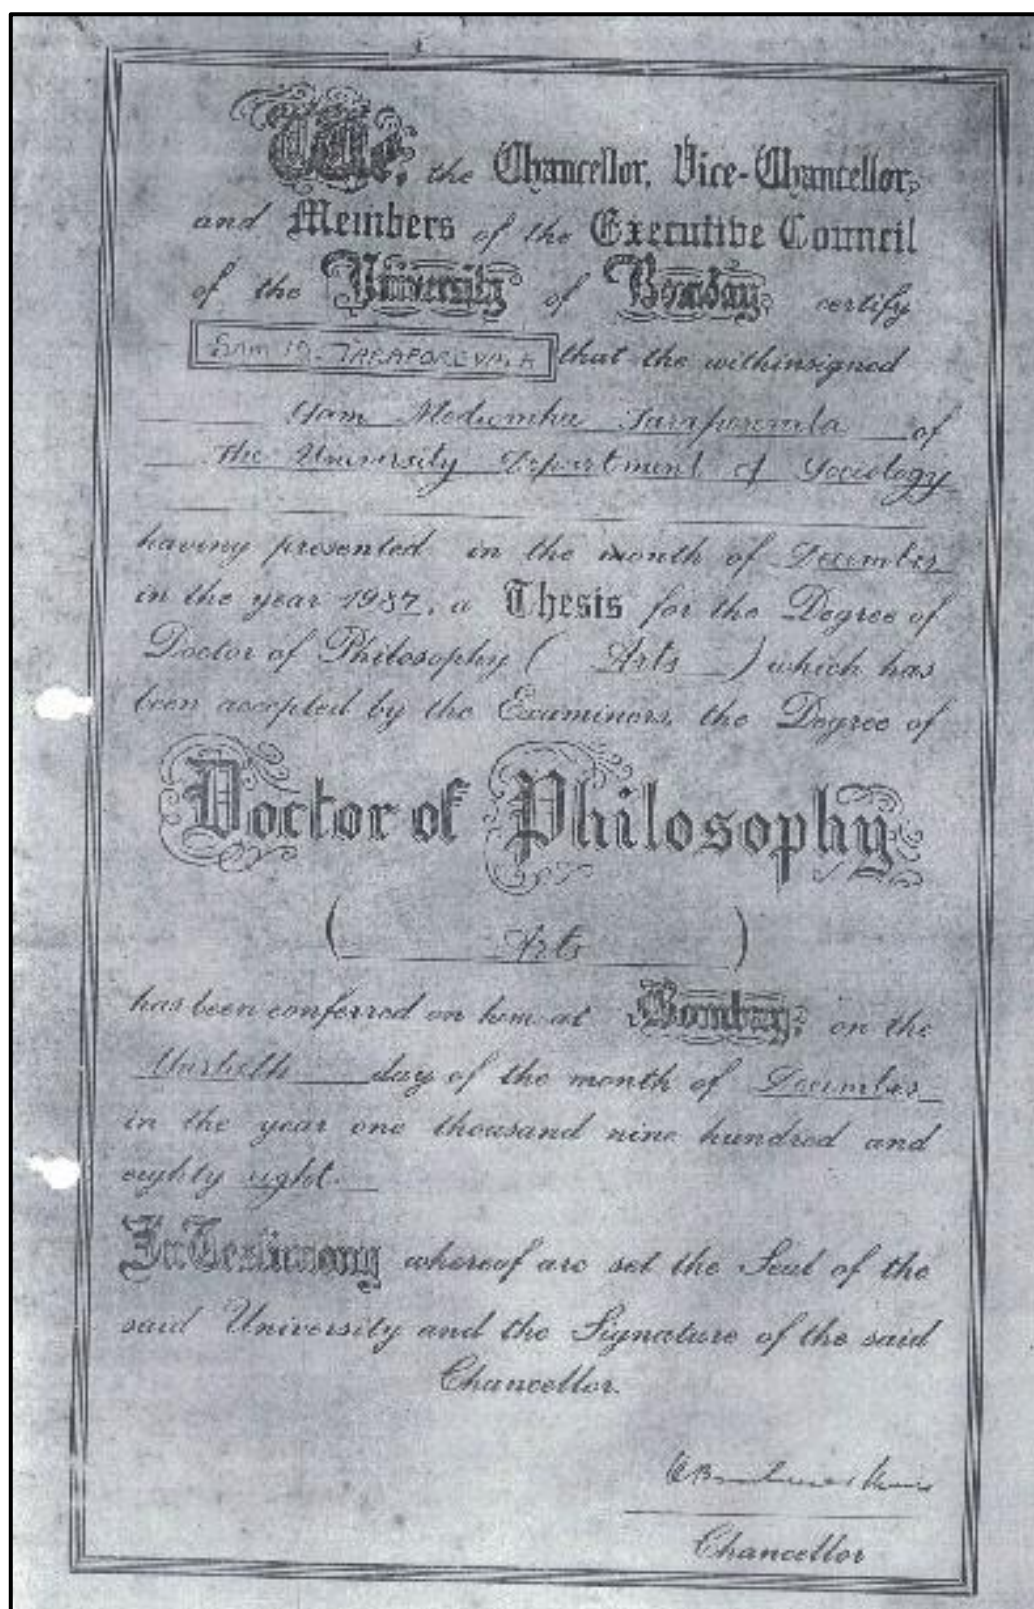 We, the Chancellor, Vice-Chancellor,
and Members of the Executive Council
of the University of Bombay certify
SAM M. TARAPOREVALA that the withinsigned
Sam Taraporevala of
the University Department of Sociology
having presented in the month of December
in the year 1987, a Thesis for the Degree of
Doctor of Philosophy ( Arts ) which has
been accepted by the Examiners, the Degree of
Doctor of Philosophy
( Arts )
has been conferred on him at Bombay, on the
day of the month of December
in the year one thousand nine hundred and
eighty eight.
In Testimony whereof are set the Seal of the
said University and the Signature of the said
Chancellor.
Chancellor